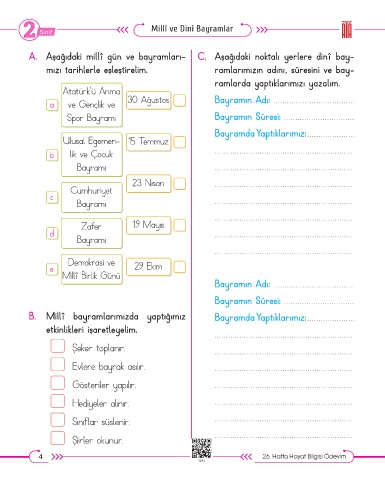 2. Sınıf
Millî ve Dinî Bayramlar
A. Aşağıdaki millî gün ve bayramları-
mızı tarihlerle eşleştirelim.
a Atatürk'ü Anma
ve Gençlik ve
Spor Bayramı
30 Ağustos
b Ulusal Egemen-
lik ve Çocuk
Bayramı
15 Temmuz
c Cumhuriyet
Bayramı
23 Nisan
d Zafer
Bayramı
19 Mayıs
e Demokrasi ve
Millî Birlik Günü
29 Ekim
B. Millî bayramlarımızda yaptığımız
etkinlikleri işaretleyelim.
Şeker toplanır.
Evlere bayrak asılır.
Gösteriler yapılır.
Hediyeler alınır.
Sınıflar süslenir.
Şiirler okunur.
C. Aşağıdaki noktalı yerlere dinî bay-
ramlarımızın adını, süresini ve bay-
ramlarda yaptıklarımızı yazalım.
Bayramın Adı: ..............................
Bayramın Süresi: ..........................
Bayramda Yaptıklarımız: .................
Bayramın Adı: ..............................
Bayramın Süresi: ..........................
Bayramda Yaptıklarımız: .................
4
26. Hafta Hayat Bilgisi Ödevim